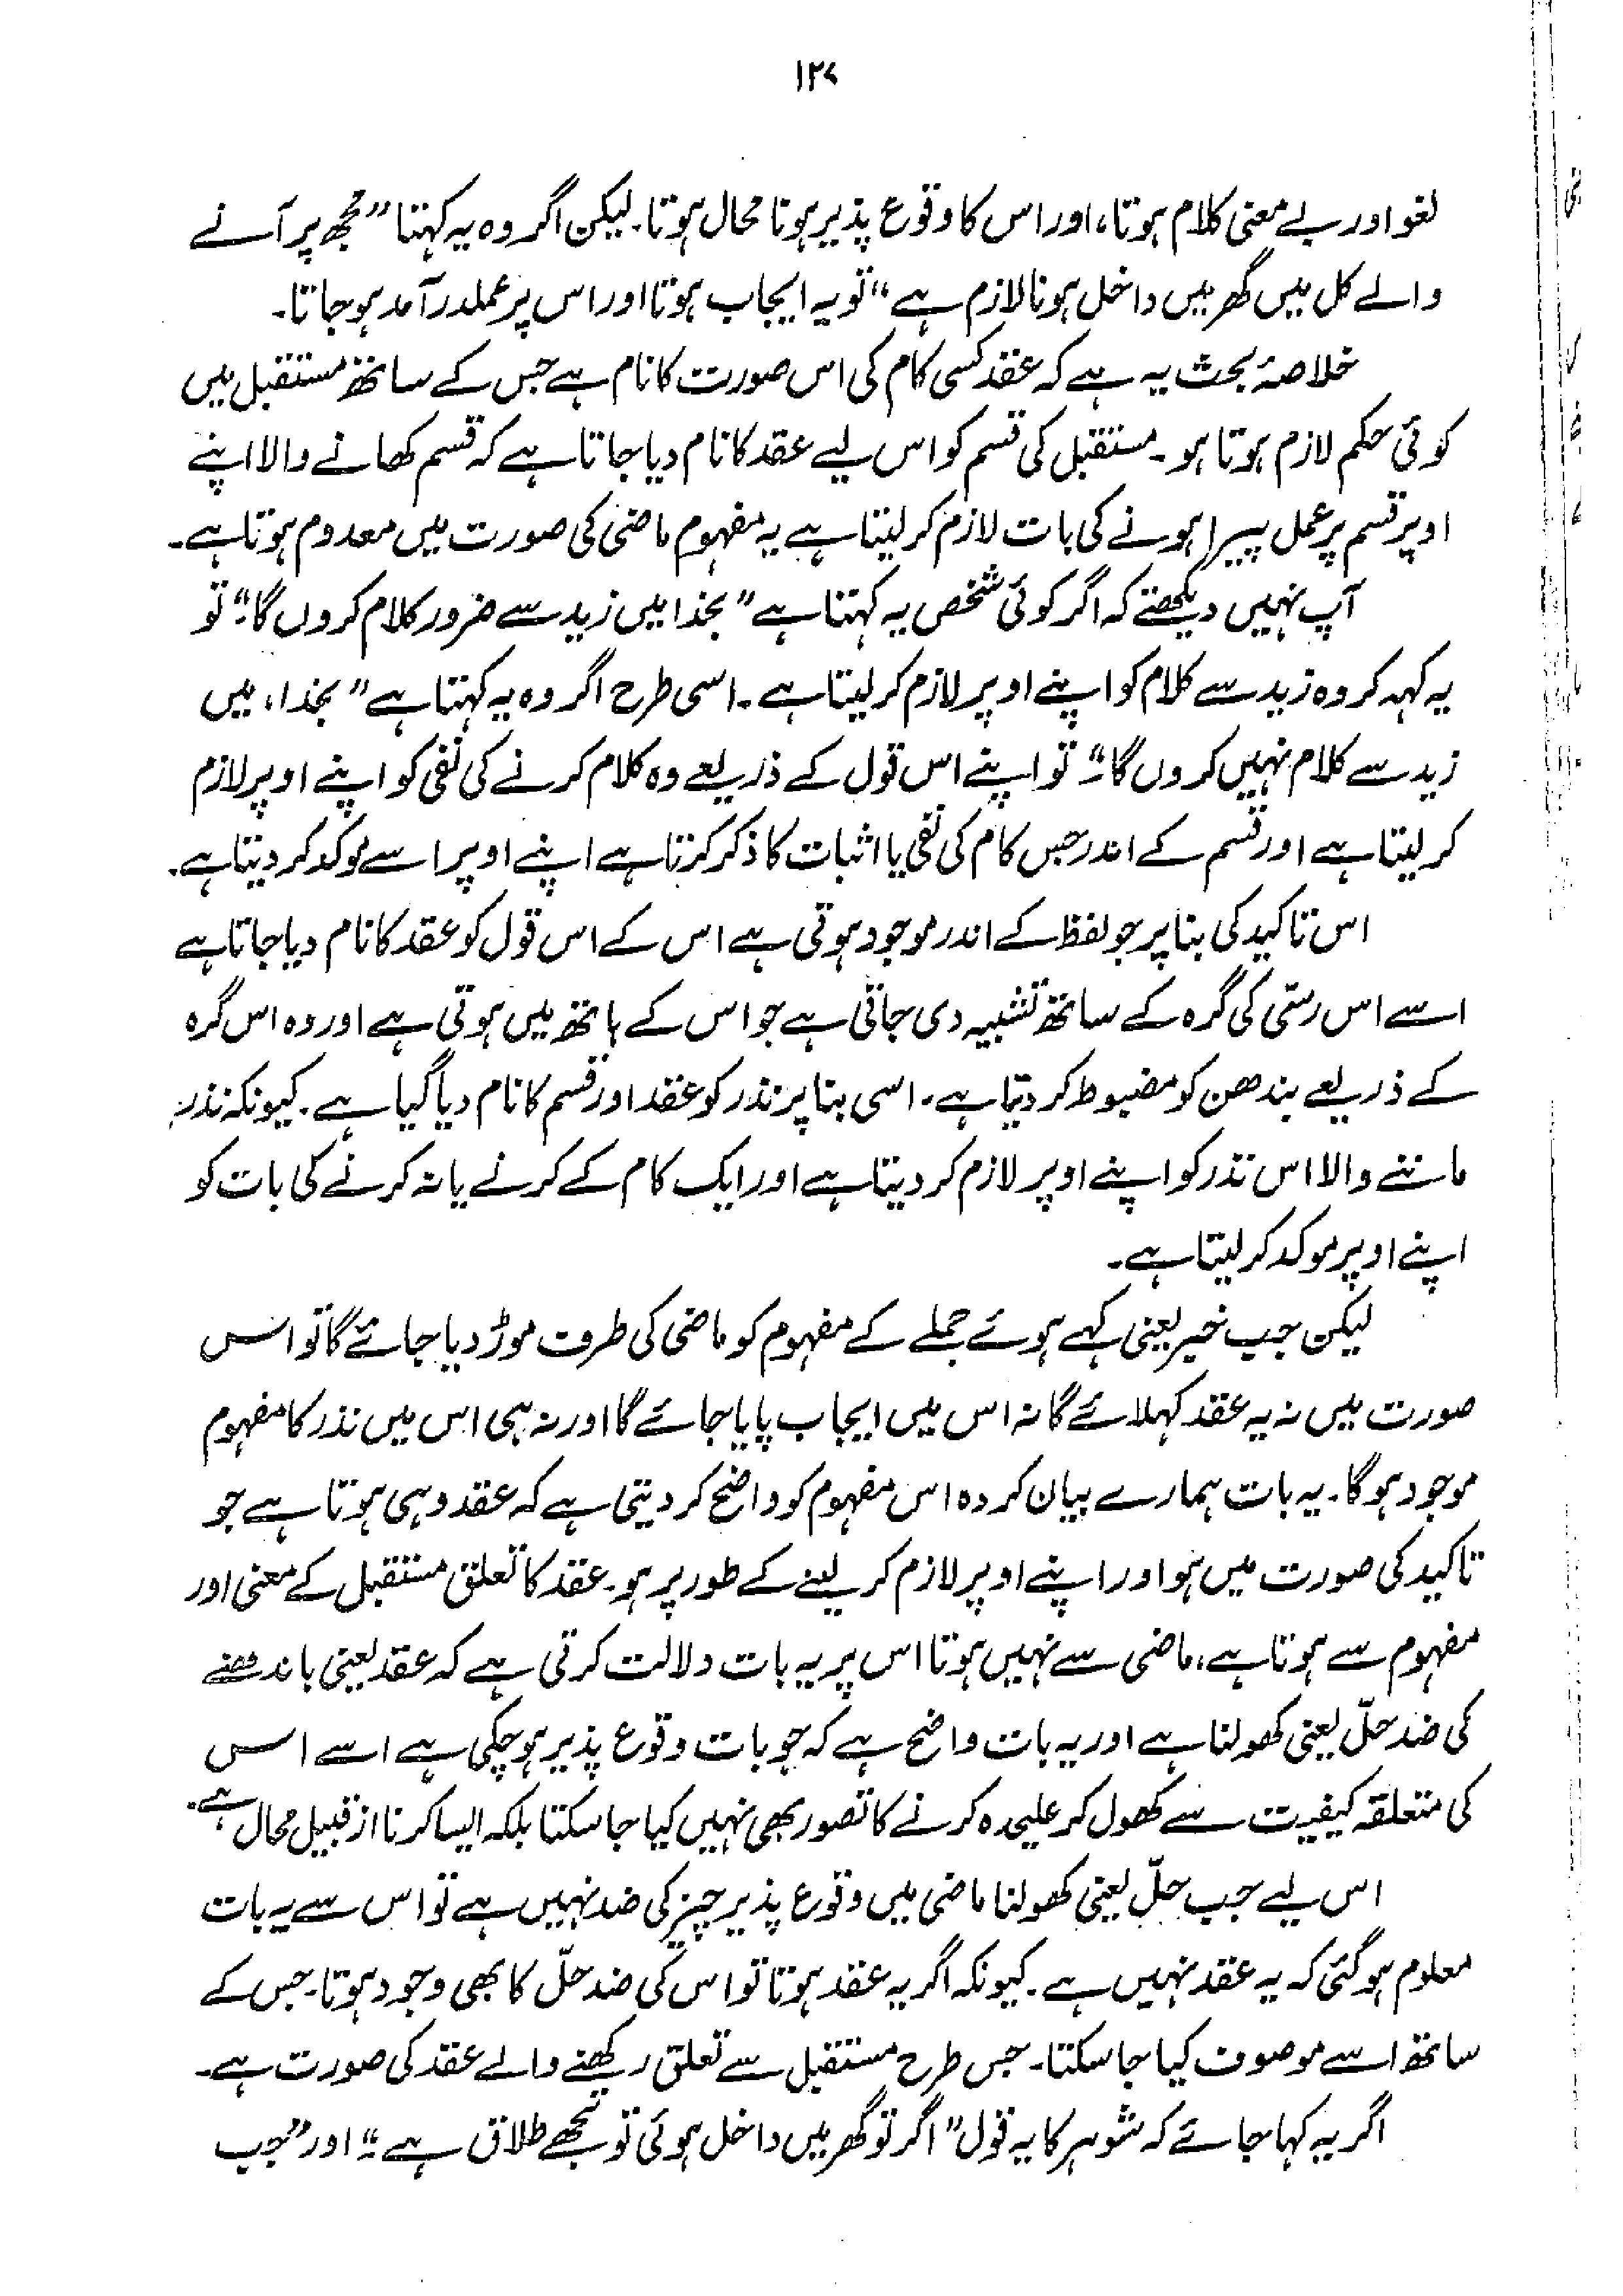 ۱۲۷
لغو اور بے معنی کلام ہوتا، اور اس کا وقوع پذیر ہونا محال ہوتا۔ لیکن اگر وہ یہ کہتا ”مجھ پر آنے
والے کل میں گھر میں داخل ہونا لازم ہے“ تو یہ ایجاب ہوتا اور اس پر عملدرآمد ہو جاتا۔
خلاصۂ بحث یہ ہے کہ عقد کسی کام کی اس صورت کا نام ہے جس کے ساتھ مستقبل میں
کوئی حکم لازم ہوتا ہو۔ مستقبل کی قسم کو اس لیے عقد کا نام دیا جاتا ہے کہ قسم کھانے والا اپنے
اوپر قسم پر عمل پیرا ہونے کی بات لازم کر لیتا ہے یہ مفہوم ماضی کی صورت میں معدوم ہوتا ہے۔
آپ نہیں دیکھتے کہ اگر کوئی شخص یہ کہتا ہے ”بخدا میں زید سے ضرور کلام کروں گا۔“ تو
یہ کہہ کر وہ زید سے کلام کو اپنے اوپر لازم کر لیتا ہے۔ اسی طرح اگر وہ یہ کہتا ہے ”بخدا، میں
زید سے کلام نہیں کروں گا۔“ تو اپنے اس قول کے ذریعے وہ کلام کرنے کی نفی کو اپنے اوپر لازم
کر لیتا ہے اور قسم کے اندر جس کام کی نفی یا اثبات کا ذکر کرتا ہے اپنے اوپر اسے موکد کر دیتا ہے۔
اس تاکید کی بنا پر جو لفظ کے اندر موجود ہوتی ہے اس کے اس قول کو عقد کا نام دیا جاتا ہے
اسے اس رسّی کی گرہ کے ساتھ تشبیہ دی جاتی ہے جو اس کے ہاتھ میں ہوتی ہے اور وہ اس گرہ
کے ذریعے بندھن کو مضبوط کر دیتا ہے۔ اسی بنا پر نذر کو عقد اور قسم کا نام دیا گیا ہے۔ کیونکہ نذر
ماننے والا اس نذر کو اپنے اوپر لازم کر دیتا ہے اور ایک کام کے کرنے یا نہ کرنے کی بات کو
اپنے اوپر موکد کر لیتا ہے۔
لیکن جب خبر یعنی کہے ہوئے جملے کے مفہوم کو ماضی کی طرف موڑ دیا جائے گا تو اس
صورت میں نہ یہ عقد کہلائے گا نہ اس میں ایجاب پایا جائے گا اور نہ ہی اس میں نذر کا مفہوم
موجود ہوگا۔ یہ بات ہمارے بیان کردہ اس مفہوم کو واضح کر دیتی ہے کہ عقد وہی ہوتا ہے جو
تاکید کی صورت میں ہو اور اپنے اوپر لازم کر لینے کے طور پر ہو۔ عقد کا تعلق مستقبل کے معنی اور
مفہوم سے ہوتا ہے، ماضی سے نہیں ہوتا اس پر یہ بات دلالت کرتی ہے کہ عقد یعنی باندھنے
کی ضد حلّ یعنی کھولنا ہے اور یہ بات واضح ہے کہ جو بات وقوع پذیر ہو چکی ہے اسے اس
کی متعلقہ کیفیت سے کھول کر علیحدہ کرنے کا تصور بھی نہیں کیا جا سکتا بلکہ ایسا کرنا از قبیل محال ہے۔
اس لیے جب حلّ یعنی کھولنا ماضی میں وقوع پذیر چیز کی ضد نہیں ہے تو اس سے یہ بات
معلوم ہوگئی کہ یہ عقد نہیں ہے۔ کیونکہ اگر یہ عقد ہوتا تو اس کی ضد حلّ کا بھی وجود ہوتا۔ جس کے
ساتھ اسے موصوف کیا جا سکتا۔ جس طرح مستقبل سے تعلق رکھنے والے عقد کی صورت ہے۔
اگر یہ کہا جائے کہ شوہر کا یہ قول ”اگر تو گھر میں داخل ہوئی تو تجھے طلاق ہے۔“ اور ”جب